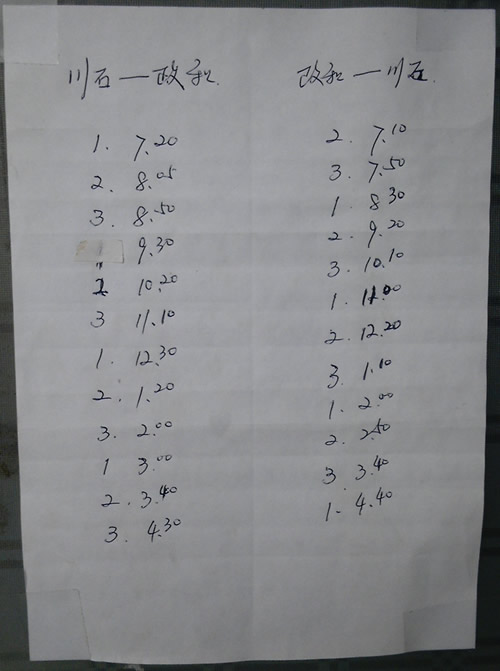 川石—政和
1. 7.20
2. 8.05
3. 8.50
9.30
2 10.20
3 11.10
1. 12.30
2. 1.20
3. 2.00
1 3.00
2. 3.40
3. 4.30
政和—川石.
2. 7.10
3. 7.50
1. 8.30
2. 9.20
3. 10.10
1. 11.00
2. 12.20
3. 1.10
1. 2.00
2. 2.50
3 3.40
1. 4.40